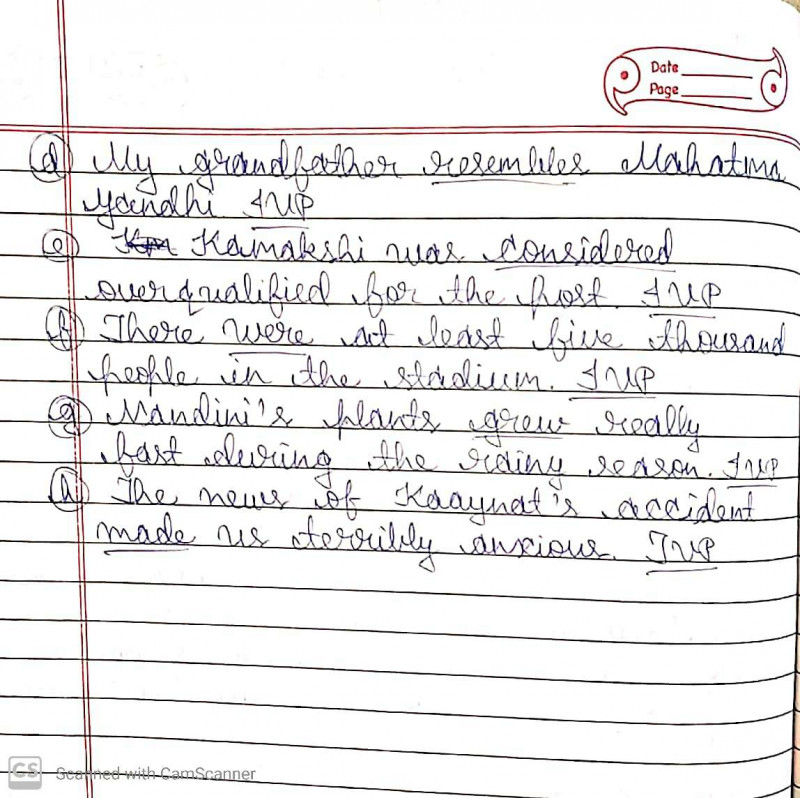 Date
Page
(d) My grandfather resembles Mahatma
Gandhi IVP
(e) Kamakshi was considered
overqualified for the post. IVP
(f) There were at least five thousand
people in the stadium. IVP
(g) Nandini's plants grew really
fast during the rainy season. IVP
(h) The news of Kaaynat's accident
made us terribly anxious. IVP
CS Scanned with CamScanner